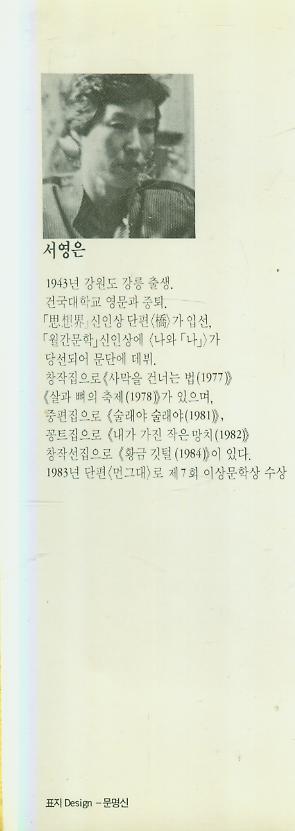 서영은
1943년 강원도 강릉 출생.
건국대학교 영문과 중퇴.
「思想界」신인상 단편〈橋〉가 입선,
「월간문학」신인상에 〈나와「나」〉가
당선되어 문단에 데뷔.
창작집으로《사막을 건너는 법(1977)》
《살과 뼈의 축제(1978)》가 있으며,
중편집으로 《술래야 술래야(1981)》,
꽁트집으로 《내가 가진 작은 망치(1982)》
창작선집으로 《황금 깃털(1984)》이 있다.
1983년 단편〈먼그대〉로 제7회 이상문학상 수상
표지 Design －문명신